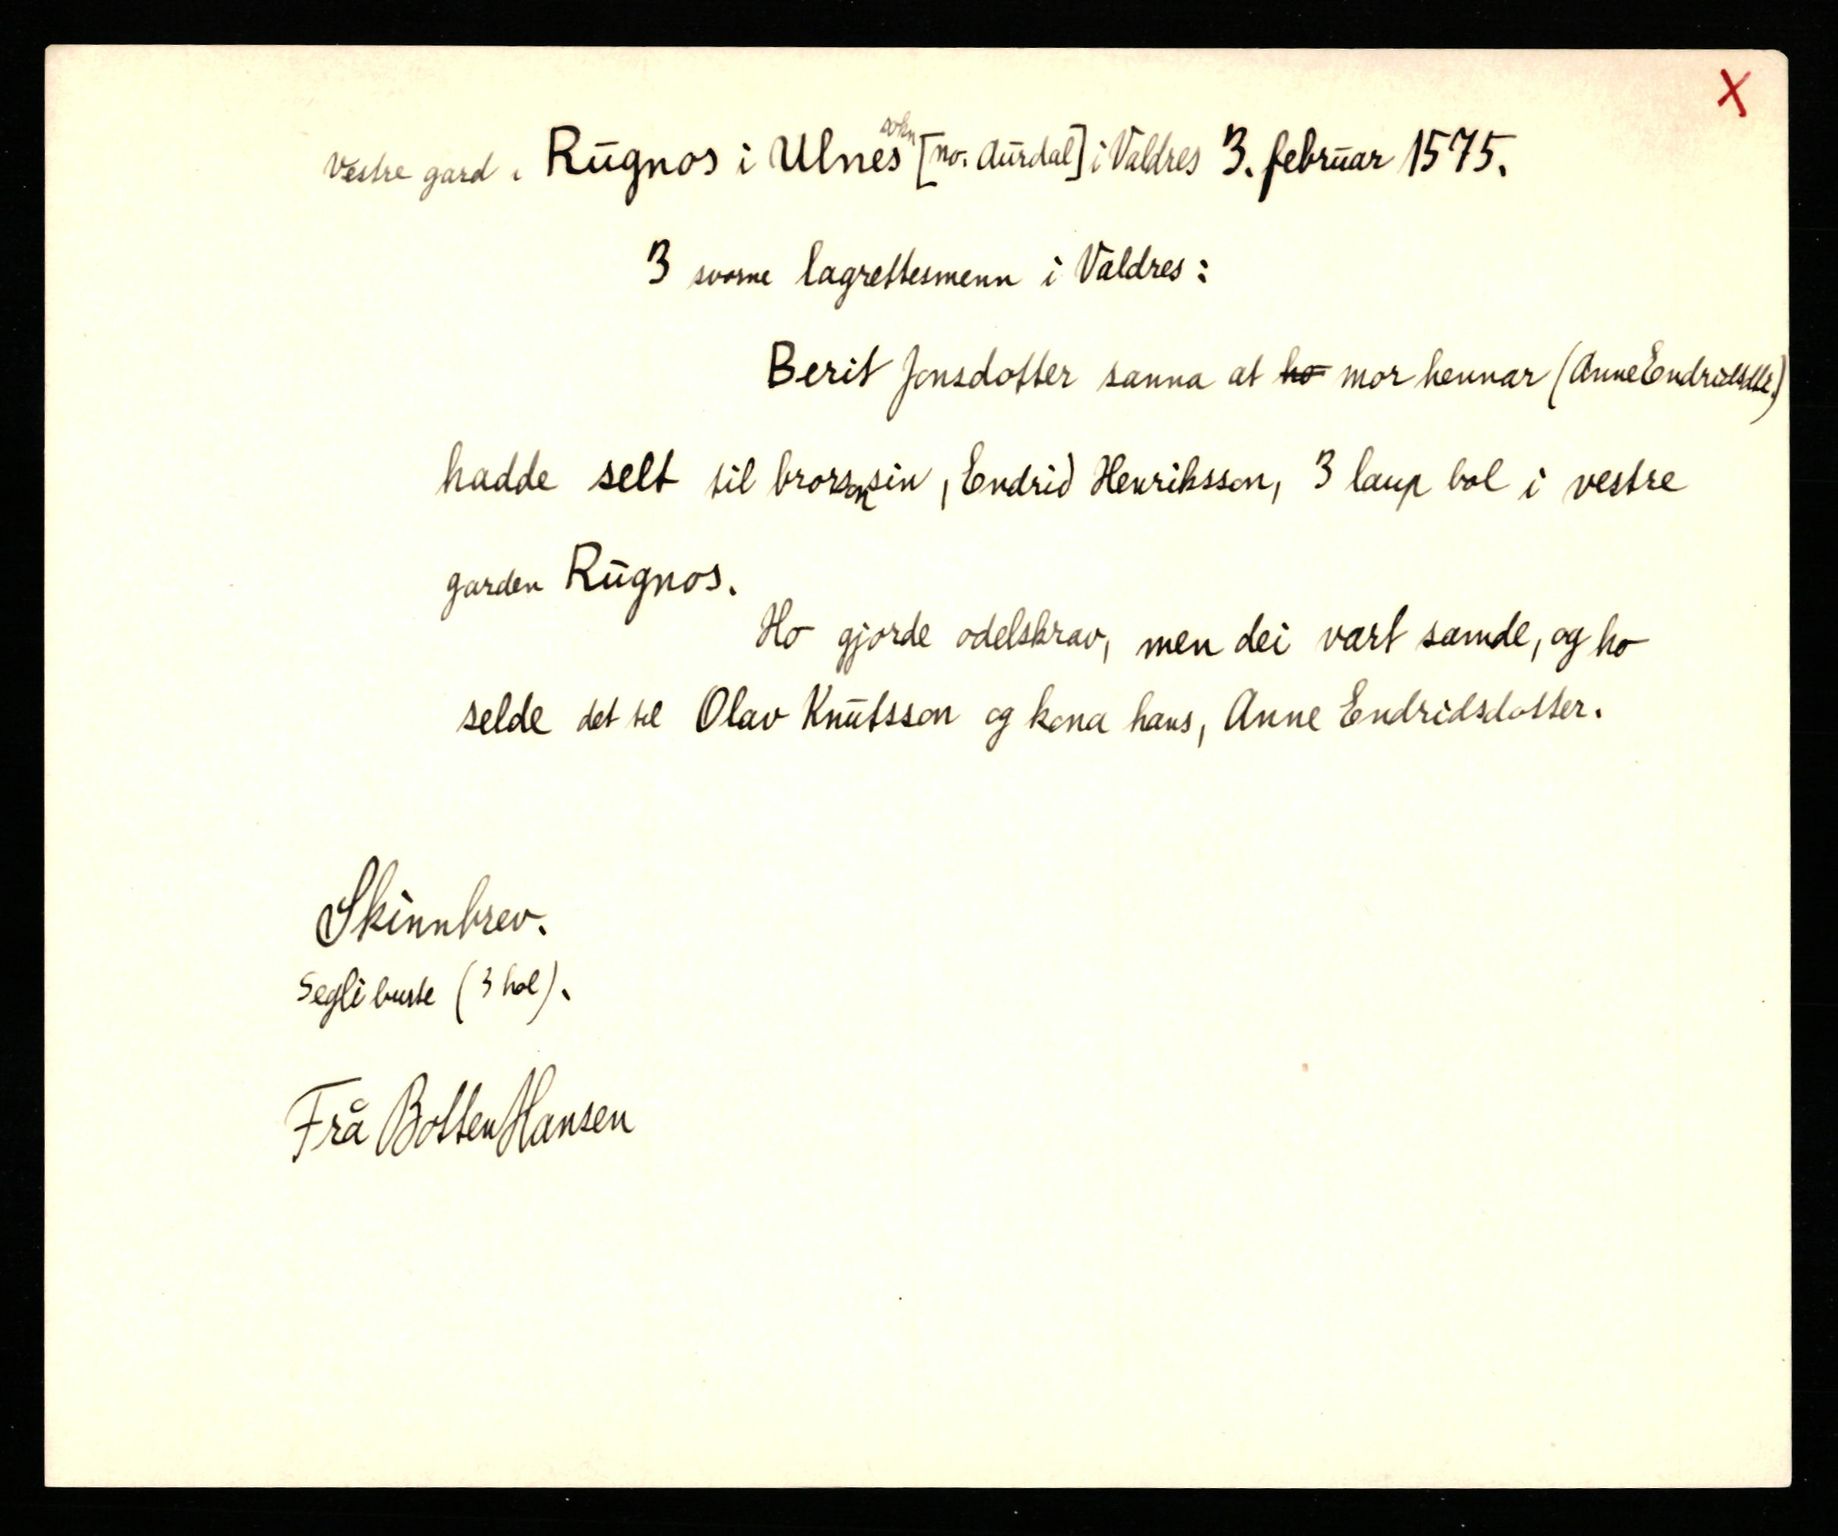 X
Vestre gard i Rugnos i Ulnes sokn [no. Aurdal] i Valdres 3. februar 1575.
3 svorne lagrettesmenn i Valdres:
Berit Jonsdotter sanna at ho mor hennar (Anne Endridsdtr.)
hadde selt til brorson sin, Endrid Henriksson, 3 laup bol i vestre
garden Rugnos.
Ho gjorde odelskrav, men dei vart samde, og ho
selde det til Olav Knutsson og kona hans, Anne Endridsdotter.
Skinnbrev.
Segli burte (3 hol).
Frå Botten Hansen